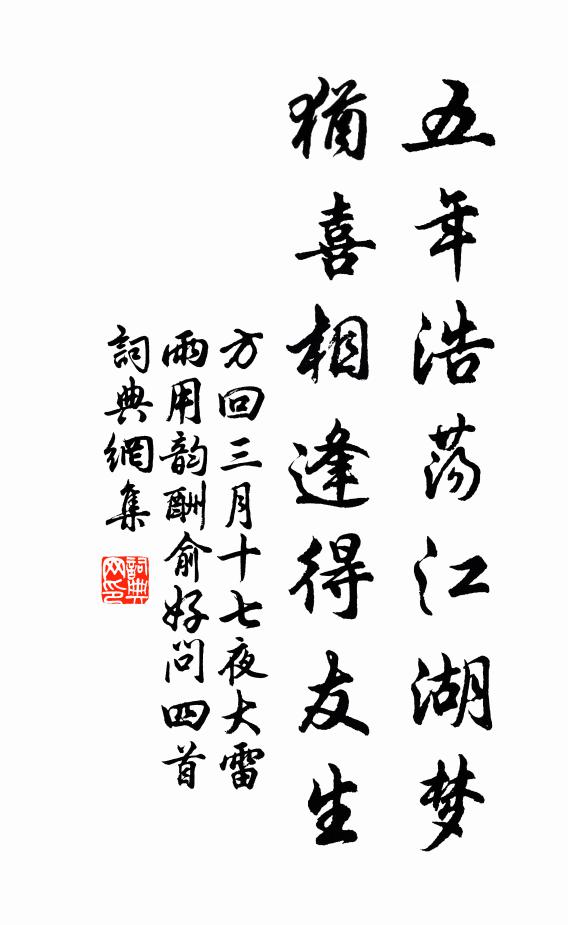 五年浩荡江湖梦
猶喜相逢得友生
方回三月十七夜大雷
雨用韵酬俞好問四首
詞典網集
詞典网印